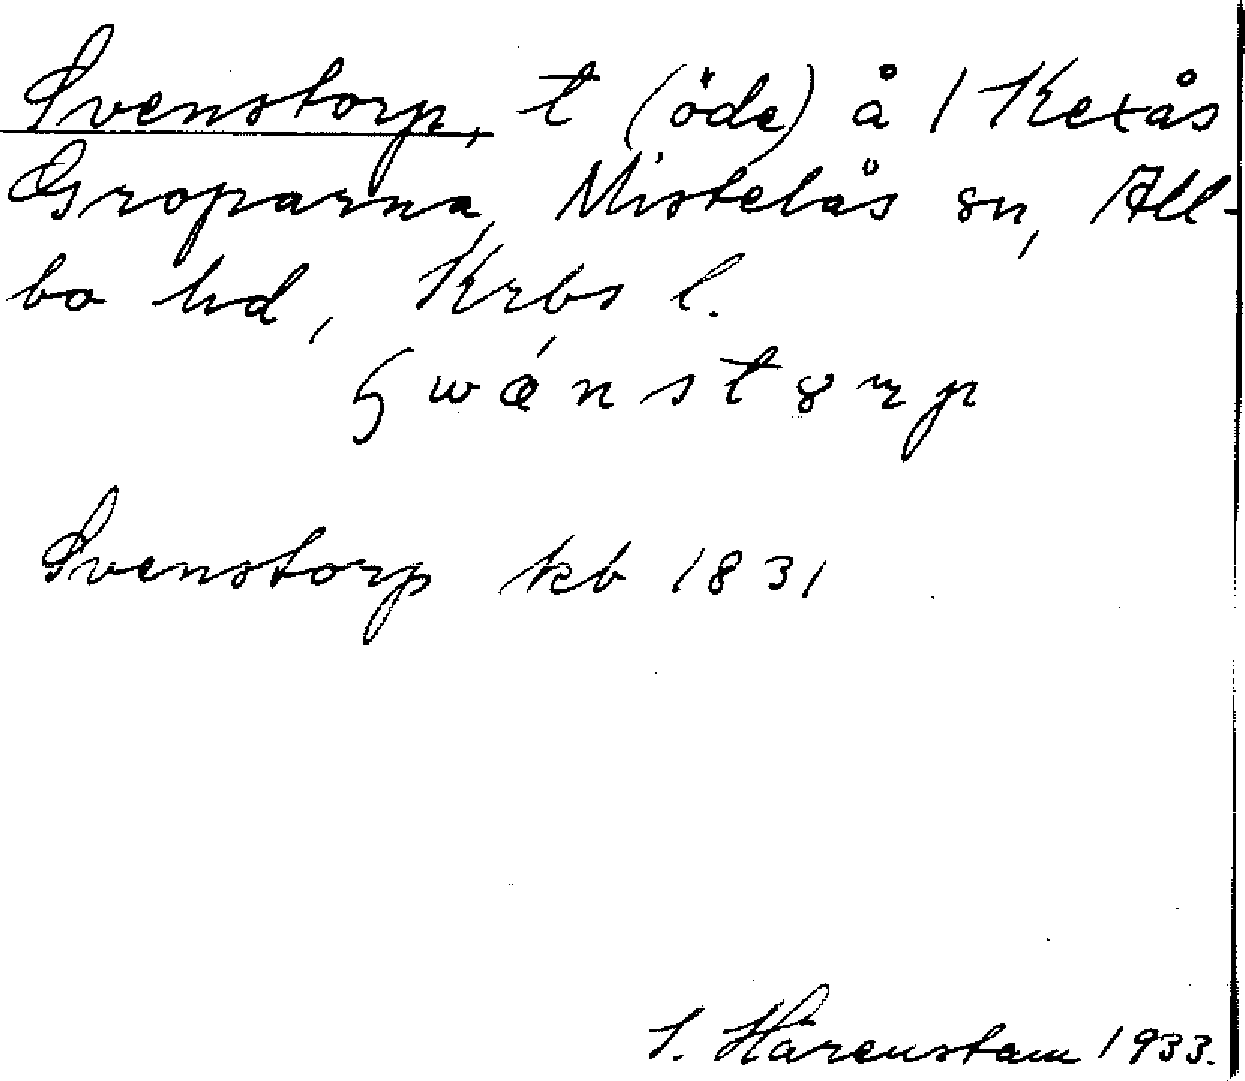 Svenstorp, t (öde) å 1 Kexås
Groparna, Mistelås sn, All-
bo hd, Krbs l.
Svenstorp kb 1831
S. Härenstam 1933.